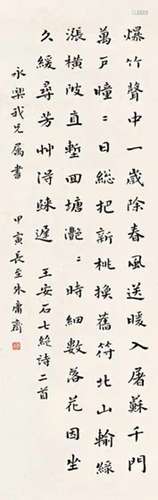 爆竹聲中一歲除春風送暖入屠蘇千門
萬戶曈〻日總把新桃換舊符北山輸綠
漲橫陂直塹回塘灩〻時細數落花因坐
久緩尋芳草得歸遲 王安石七絕詩二首
永樂我兄屬書 甲寅長至朱庸齋